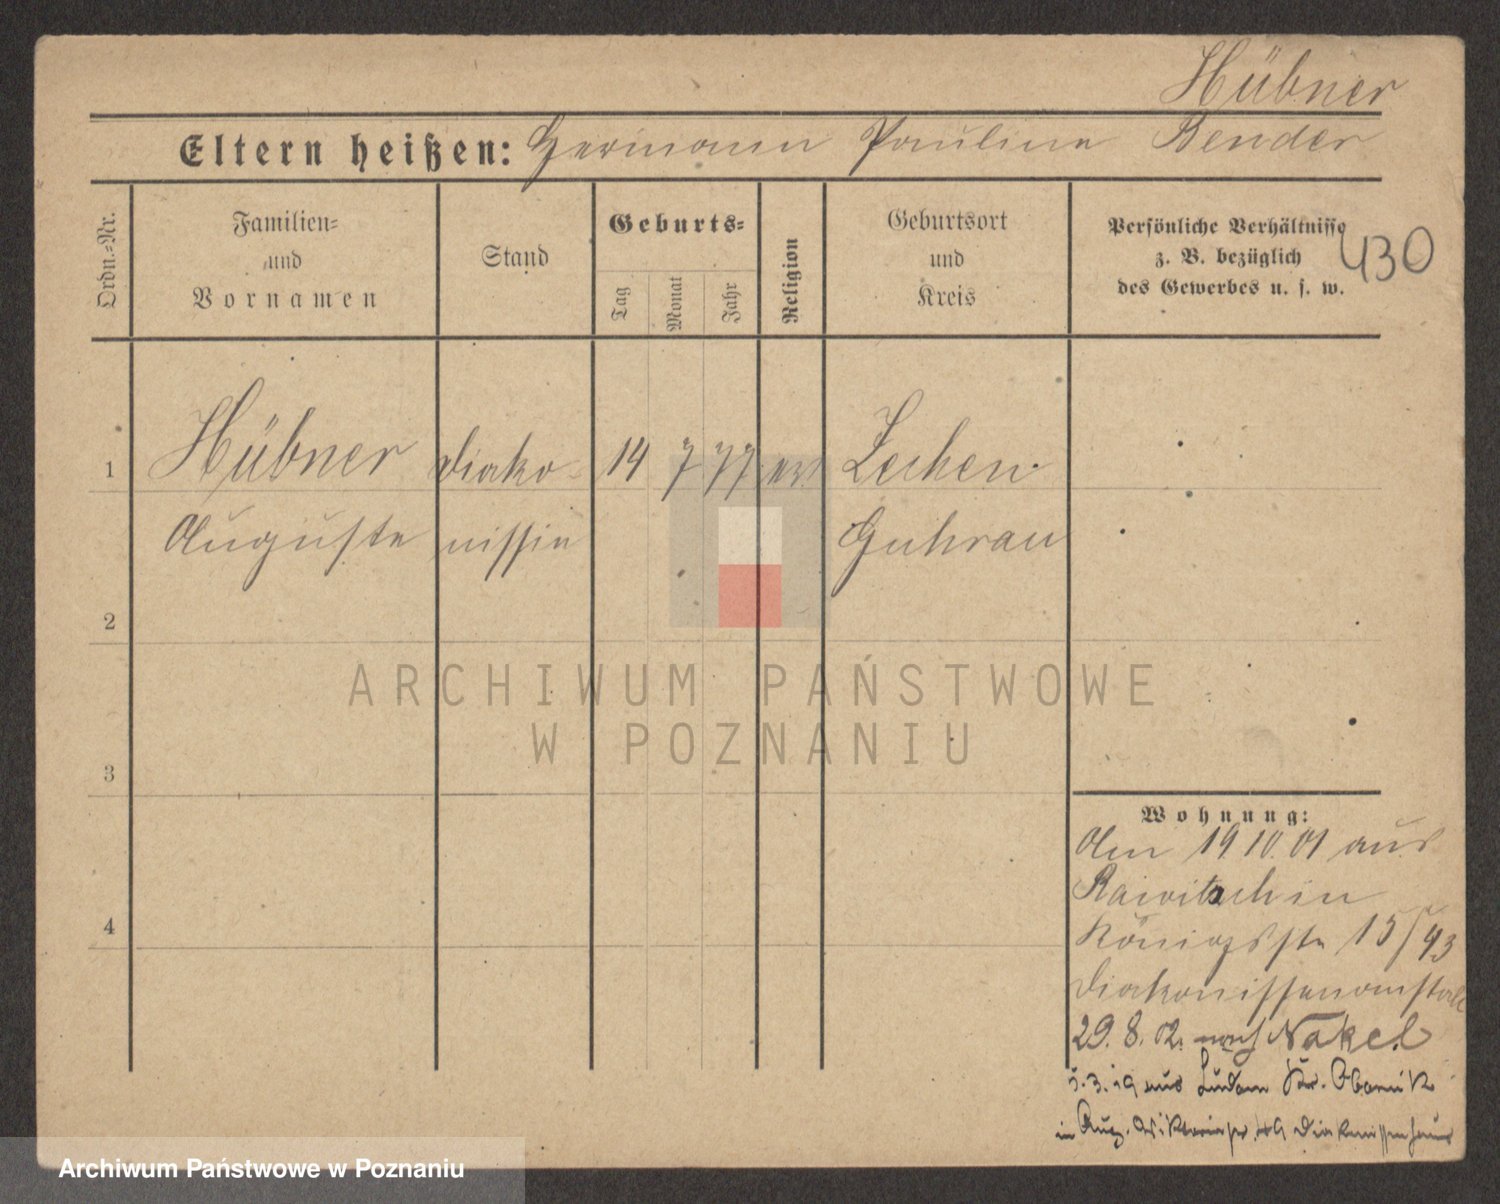 Hübner
Eltern heißen: Hermann Pauline Bender
Ordn.-Nr.
Familien-
und
Vornamen
Stand
Geburts-
Tag
Monat
Jahr
Religion
Geburtsort
und
Kreis
Persönliche Verhältnisse
z. B. bezüglich
des Gewerbes u. s. w.
430
1 Hübner Diako- 14 7 77 ev. Lechen
Auguste nissin Guhrau
2
3
4
ARCHIWUM PAŃSTWOWE
W POZNANIU
Wohnung:
Am 19.10.01 aus
Rawitsch in
Königsstr 15/43
Diakonissenanstalt
29.8.02. nach Nakel
5.3.19 aus Kr. Obornik
in Diakonissenhaus
Archiwum Państwowe w Poznaniu